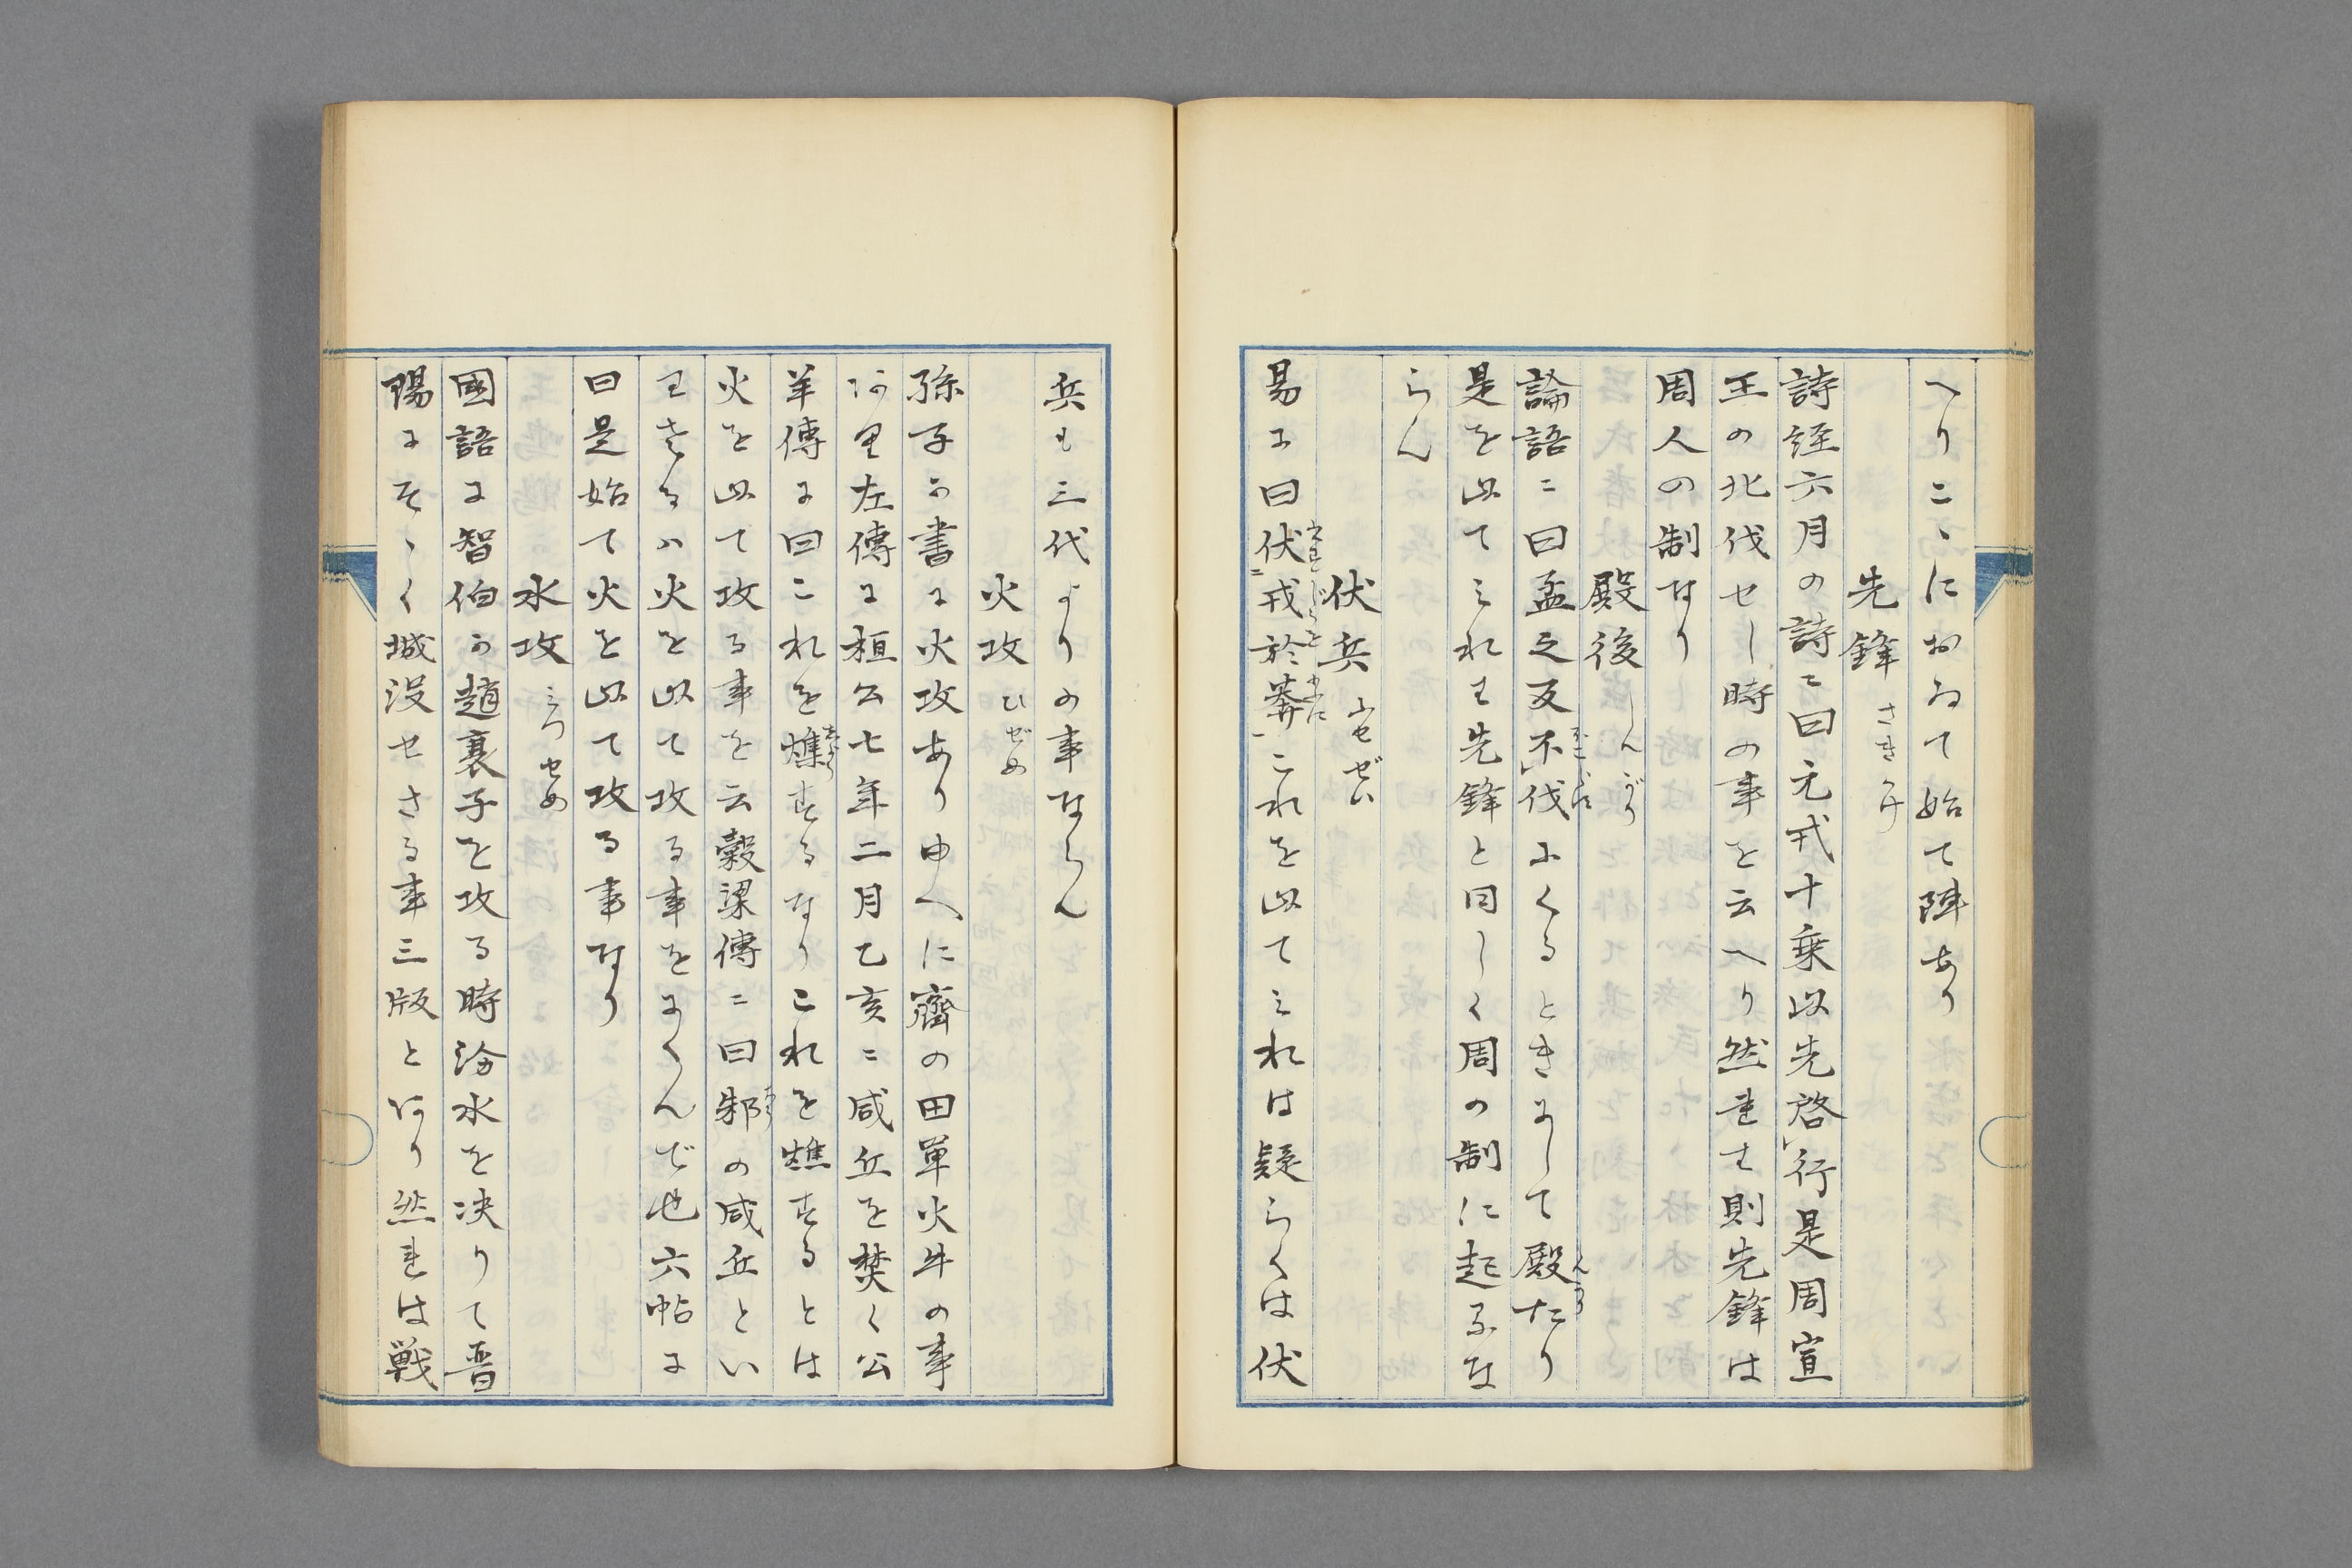 へりこゝにおゐて始て陣あり
先鋒 さきかけ
詩経六月の詩ニ曰元戎十乗以先啓行是周宣
王の北伐せし時の事を云へり然れは則先鋒は
周人の制なり
殿後 しんがり
論語ニ曰孟之反不伐にくるときにして殿たり
是を以てみれは先鋒と同しく周の制に起るな
らん
伏兵 ふせぜい
易に曰伏戎於莽これを以てみれは疑らくは伏
兵も三代よりの事ならん
火攻 ひぜめ
孫子の書に火攻あり中へに齊の田単火牛の事
あり左傳に桓公七年二月乙亥ニ咸丘を焚く公
羊傳に曰これを燋するなりこれを樵するとは
火を以て攻る事を云穀梁傳ニ曰邾の咸丘とい
わさるハ火を以て攻る事をにくんで也六帖に
曰是始て火を以て攻る事なり
水攻 みつせめ
國語に智伯か趙襄子を攻る時汾水を决りて晋
陽にそゝく城没せさる事三版とあり然れは戦